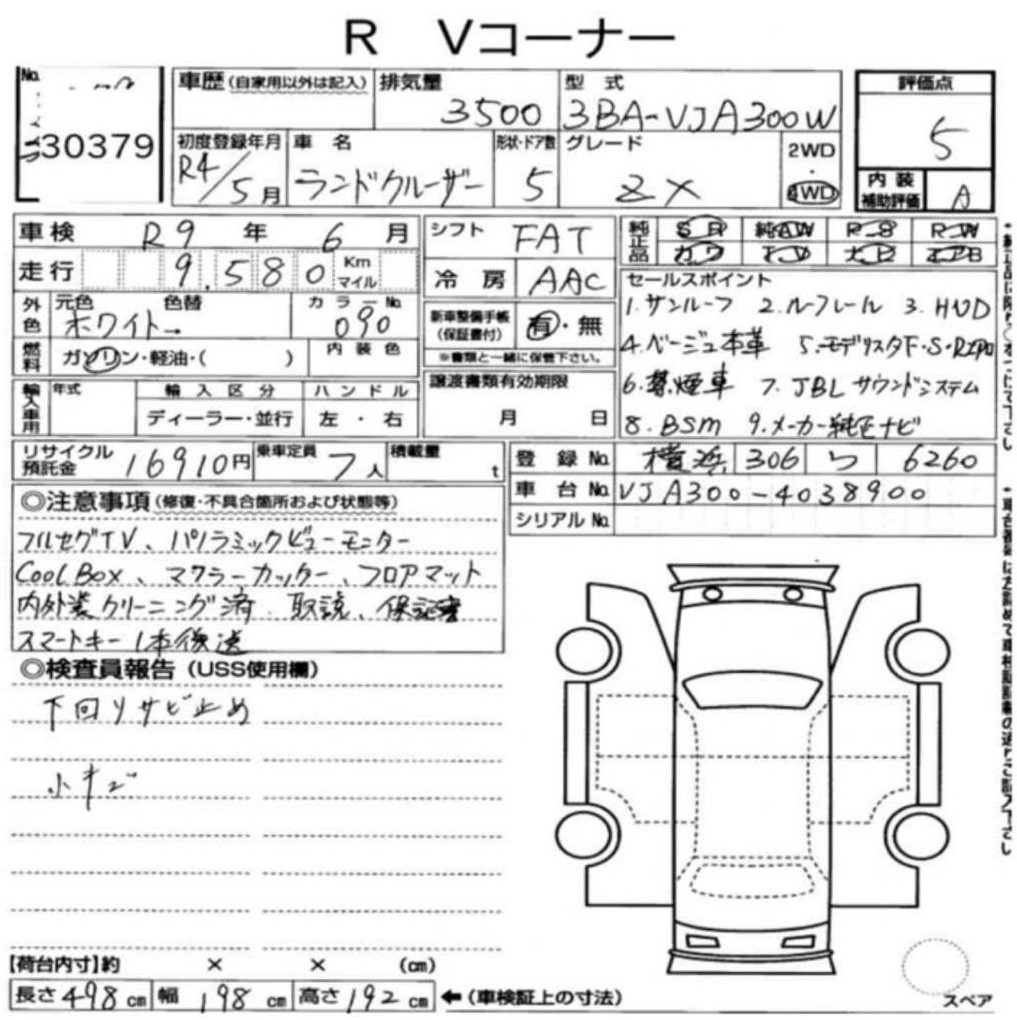 R Vコーナー
No.
30379
車歴 (自家用以外は記入) 排気量 3500 型式 3BA-VJA300W 評価点 5
初度登録年月 R4/5月 車名 ランドクルーザー 形状・ドア数 5 グレード ZX 2WD 4WD 内装補助評価 A
車検 R9年 6月 シフト FAT 純正品 SR 純AW R-S R-W
走行 9,580 Km マイル 冷房 AAC カワ TV ナビ エアB
外色 元色 ホワイト→ 色替 カラーNo. 090 新車整備手帳 (保証書付) 有・無
※書類と一緒に保管下さい。
燃料 ガソリン・軽油・( ) 内装色
セールスポイント
1.サンルーフ 2.ルーフレール 3.HUD
4.ベージュ本革 5.モデリスタF・S・Rスポ
6.禁煙車 7.JBLサウンドシステム
8.BSM 9.メーカー純正ナビ
輸入車用 年式 輸入区分 ディーラー・並行 ハンドル 左・右
譲渡書類有効期限 月 日
リサイクル預託金 16910円 乗車定員 7人 積載量 t
登録No. 横浜 306 つ 6260
車台No. VJA300-4038900
シリアルNo.
◎注意事項 (修復・不具合箇所および状態等)
フルセグTV、パノラミックビューモニター
Cool Box、マフラーカッター、フロアマット
内外装クリーニング済、取説、保証書
スマートキー1本後送
◎検査員報告 (USS使用欄)
下回りサビ止め
小キズ
【荷台内寸】約 × × (cm)
長さ 498 cm 幅 198 cm 高さ 192 cm ←(車検証上の寸法)
スペア